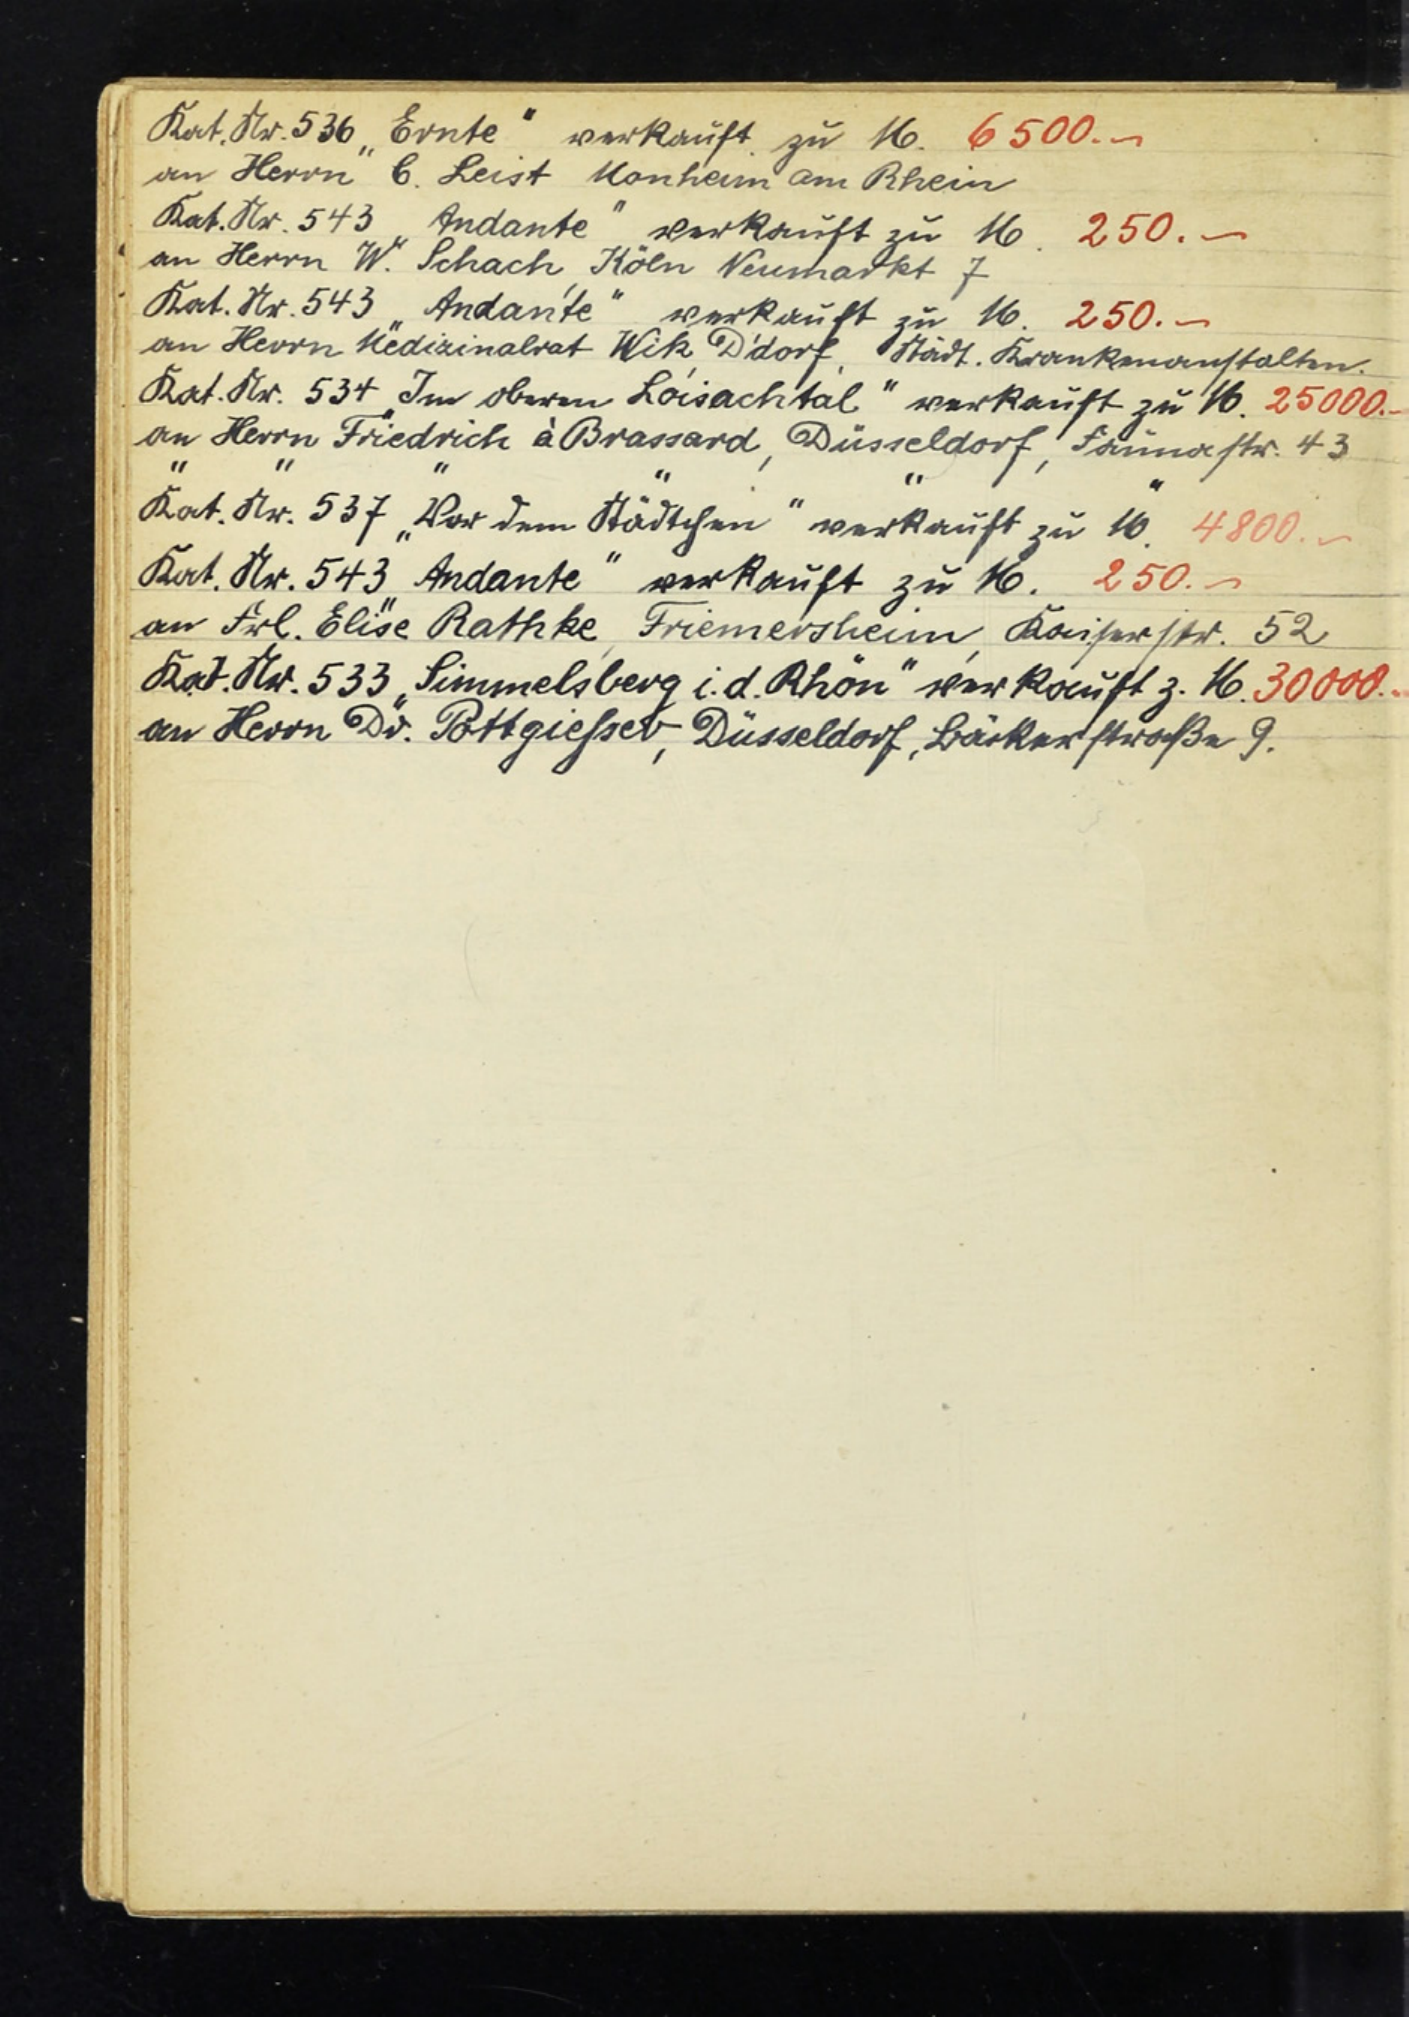 Kat. Nr. 536 „Ernte“ verkauft zu M. 6500.—
an Herrn C. Leist Monheim am Rhein
Kat. Nr. 543 „Andante“ verkauft zu M. 250.—
an Herrn W. Schach, Köln Neumarkt 7
Kat. Nr. 543 „Andante“ verkauft zu M. 250.—
an Herrn Medizinalrat Wik, D'dorf, Städt. Krankenanstalten.
Kat. Nr. 534 „Im oberen Loisachtal“ verkauft zu M. 25000.—
an Herrn Friedrich à Brassard, Düsseldorf, Faunastr. 43
" " " " " "
Kat. Nr. 537 „Vor dem Städtchen“ verkauft zu M. 4800.—
Kat. Nr. 543 „Andante“ verkauft zu M. 250.—
an Frl. Elise Rathke, Friemersheim, Kaiserstr. 52
Kat. Nr. 533 „Simmelsberg i. d. Rhön“ verkauft z. M. 30000.—
an Herrn Dr. Pottgiesser, Düsseldorf, Bäckerstraße 9.